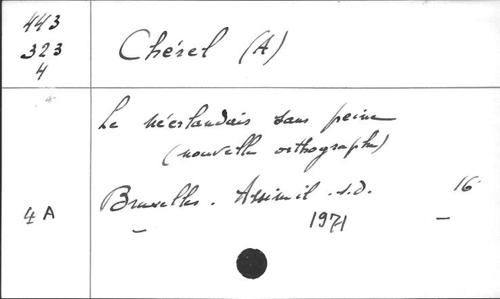 443
323
4
Chérel (A)
Le néerlandais sans peine
(nouvelle orthographe)
4 A
Bruxelles. Assimil. s.d. 16
1971